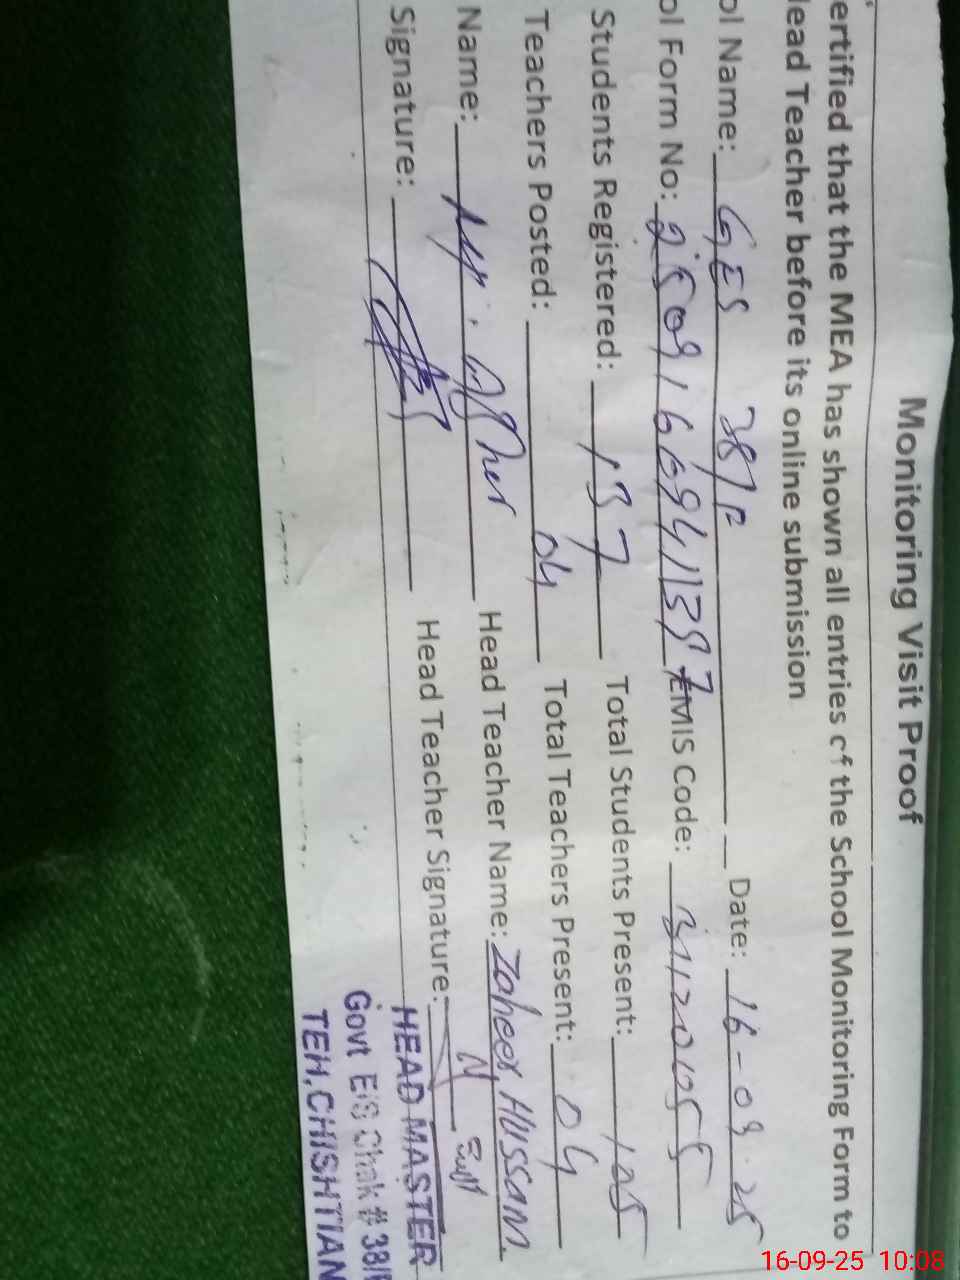 Monitoring Visit Proof
ertified that the MEA has shown all entries of the School Monitoring Form to
lead Teacher before its online submission
ol Name: GES 38/P Date: 16-09-25
ol Form No: EMIS Code: 31120055
Students Registered: 137 Total Students Present: 105
Teachers Posted: 04 Total Teachers Present: 04
Name: Head Teacher Name: Zaheer Hussain
Signature: Head Teacher Signature:
HEAD MASTER
Govt E/S Chak # 38/
TEH, CHISHTIAN
16-09-25 10:08